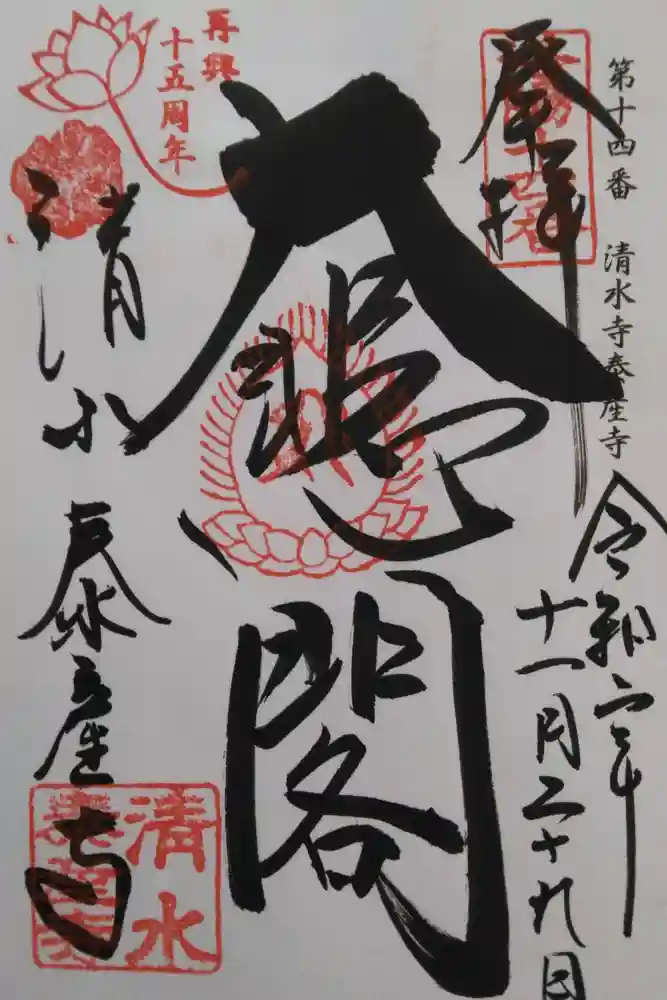 第十四番　清水寺泰産寺
奉拝
令和二年
十一月二十九日
大悲閣
再興
十五周年
清水
泰産寺
清水
泰産寺